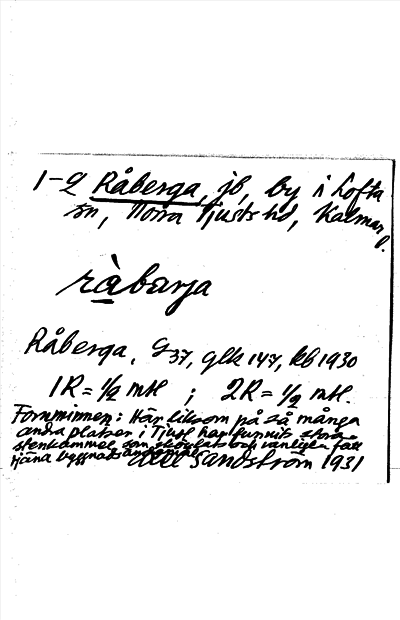 1-2 Råberga, jb, by i Lofta
sn, Norra Tjusts hd, Kalmar l.
ràbarja
Råberga, G37, glk 147, kb 1930
1R = 1/2 mtl ; 2R = 1/2 mtl.
Fornminnen: Här liksom på så många
andra platser i Tjust har funnits stora
stenkummel som skövlats och vanligen fått
tjäna byggnadsändamål
Sandström 1931